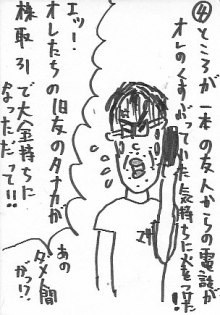 ④ところが一本の友人からの電話が
オレのくすぶっていた気持ちに火をつけた!
エッ!
オレたちの旧友のタナカが
株取引で大金持ちに
なっただって!!
あの
ダメ人間
がっ!?